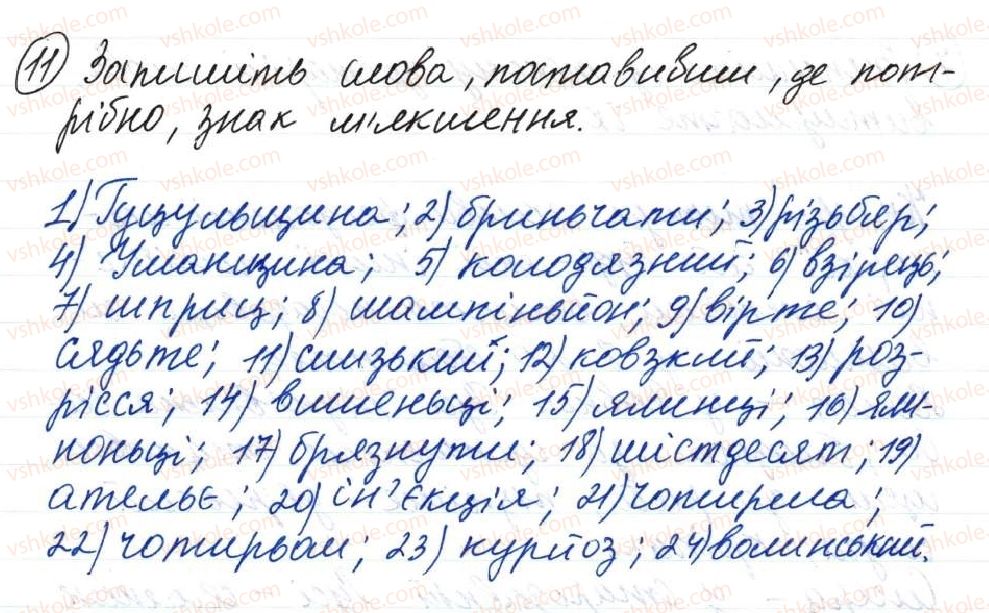 11) Запишіть слова, поставивши, де пот-
рібно, знак м'якшення.
1) Гуцульщина; 2) бриньчати; 3) різьбярі;
4) Уманщина; 5) колодязний; 6) взірець;
7) шприц; 8) шампіньйон; 9) вірте; 10)
сядьте; 11) слизький; 12) ковзкий; 13) роз-
рісся; 14) вишеньці; 15) ялинці; 16) ям-
поньці; 17) брязнути; 18) шістдесят; 19)
ательє; 20) ін'єкція; 21) чотирма;
22) чотирьом; 23) курйоз; 24) волинський.